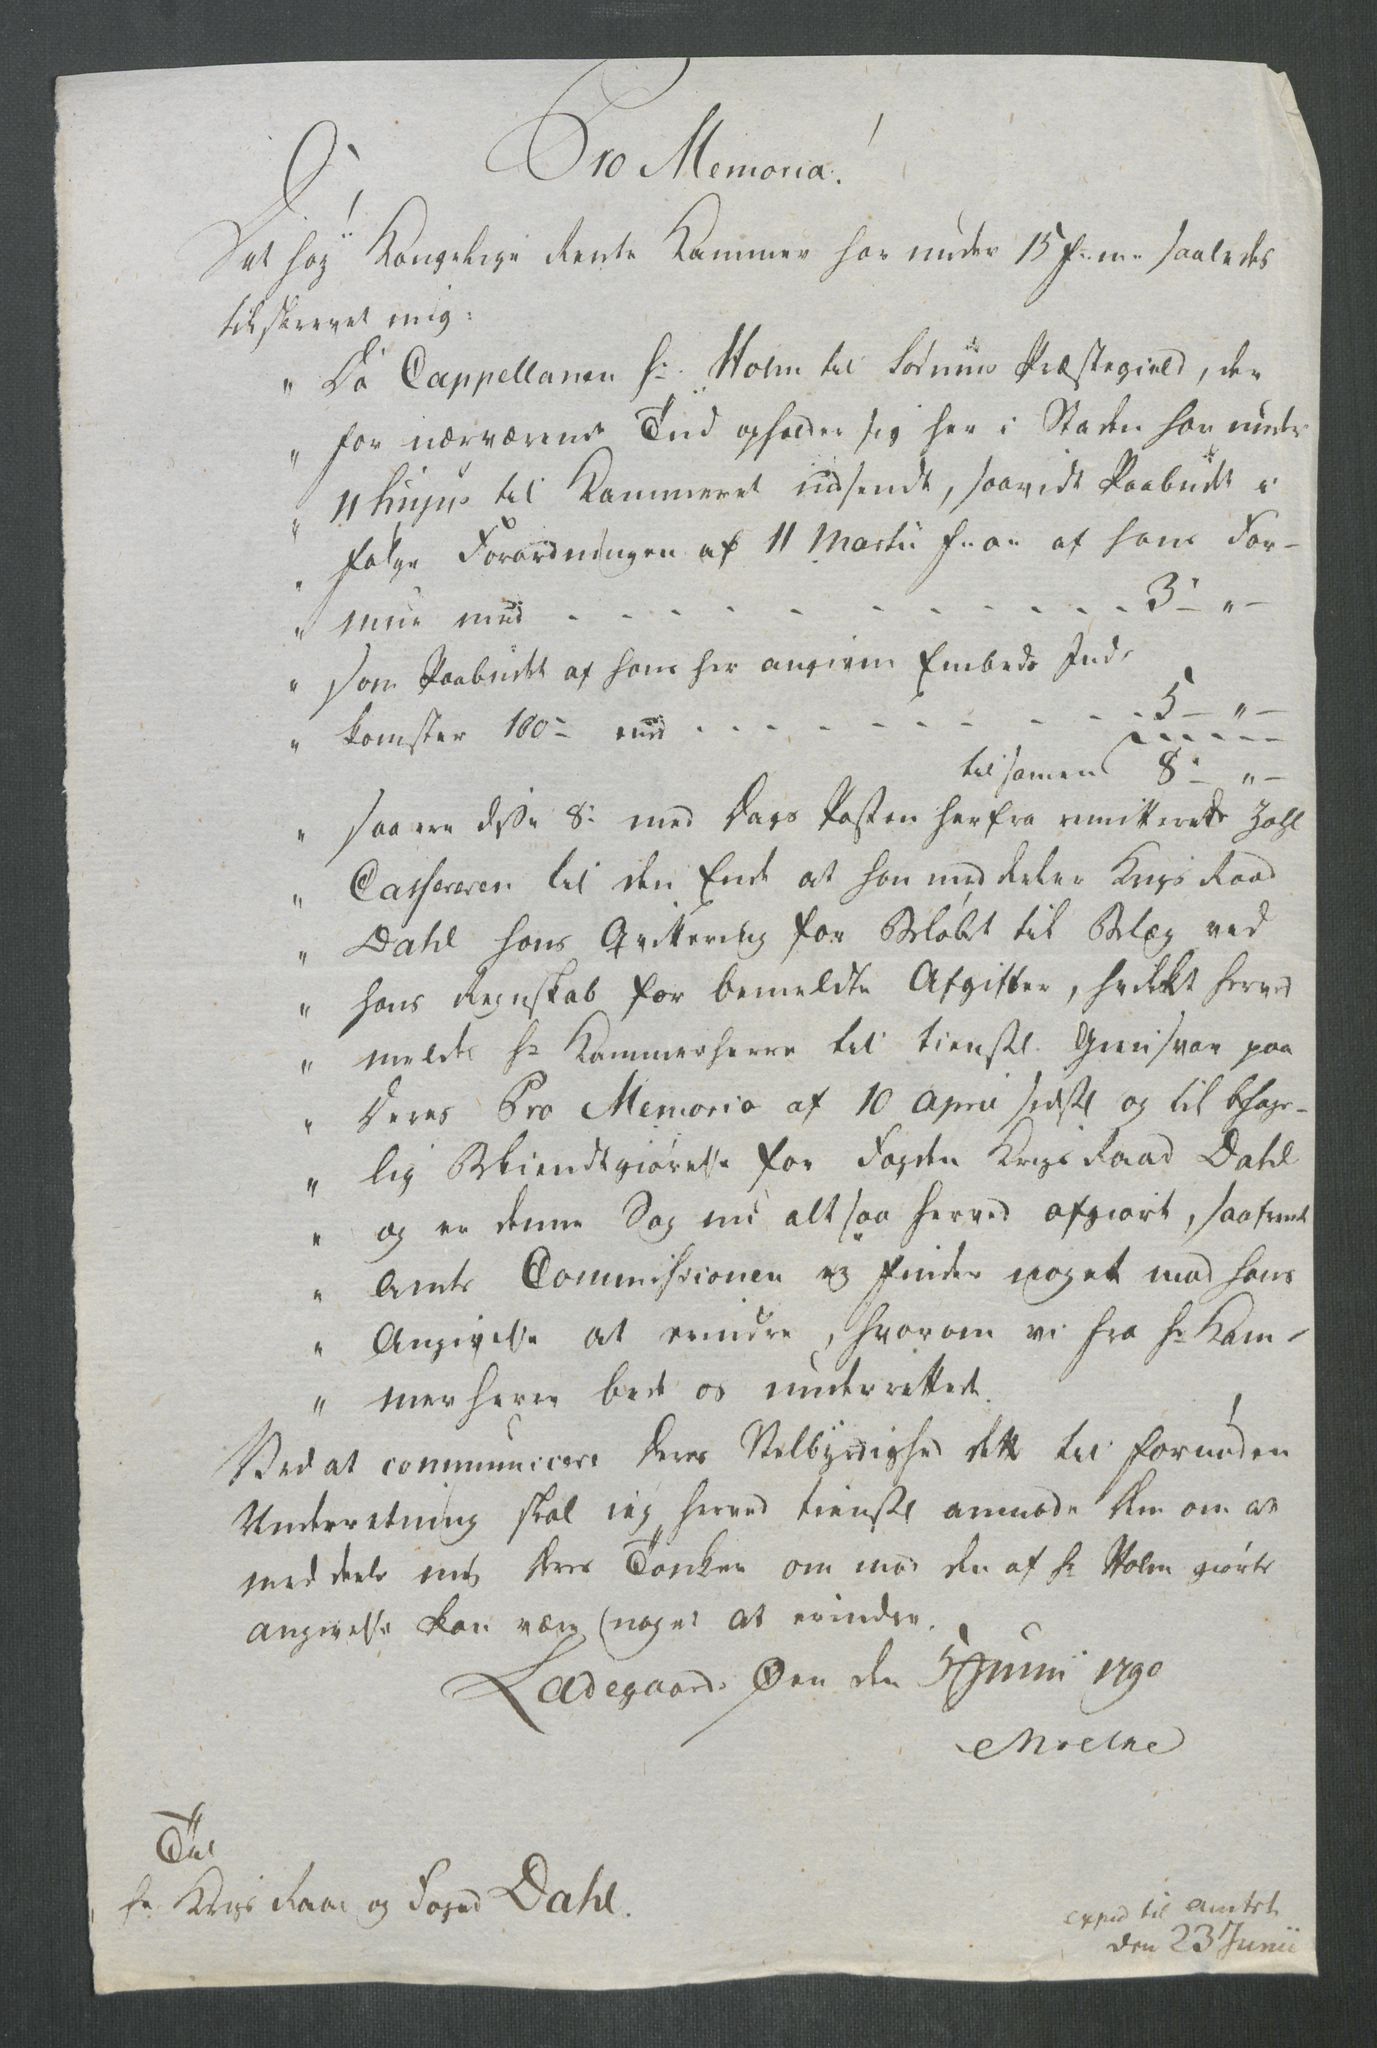 Pro Memoria!
Det høÿ Kongelige Rente Kammer har under 15 f: m: saaledes
tilskrevet mig:
" Da Cappellanen Hr. Holm til Sørum Præstegield, der
" for nærværende Tiid opholder sig her i Staden har under
" 11 hujus til Kammeret indsendt, saavidt Paabudt i
" følge Forordningen af 11 Martii f: a: af hans For-
" mue med - - - - - - - - - - - - 3 - " -
" som Paabudt af hans her angivne Embeds Ind-
" komster 100 - med - - - - - - - - - 5 - " -
tilsamen 8 - " -
" saa ere disse 8 - med Dags Posten herfra remitterede Zahl
" Casserern til den Ende at han meddeler Krigs Raad
" Dahl hans Qvittering for Beløbet til Belæg ved
" hans Regnskab for bemeldte Afgifter, hvilket herved
" meldes Hr Kammerherre til tienstl. Giensvar paa
" Deres Pro Memoria af 10 April sidstl og til behage-
" lig Bekiendtgiørelse for Fogden Krigs Raad Dahl
" og er denne Sag nu altsaa herved afgiort, saafremt
" Amts Commissionen ey finder noget mod hans
" Angivelse at erindre, hvorom vi fra Hr Kam-
" merherre bede os underrettede.
Ved at communicere Deres Velbyrdighed dette til fornøden
Underretning skal ieg herved tienstl anmode Dem om at
meddeele mig Deres Tanker om mod den af Hr Holm giorte
angivelse kan være noget at erindre.
Ladegaards Øen den 5 Junii 1790
Moltke
Til
Hr Krigs Raad og Foged Dahl.
exped til Amtet
den 23 Junii